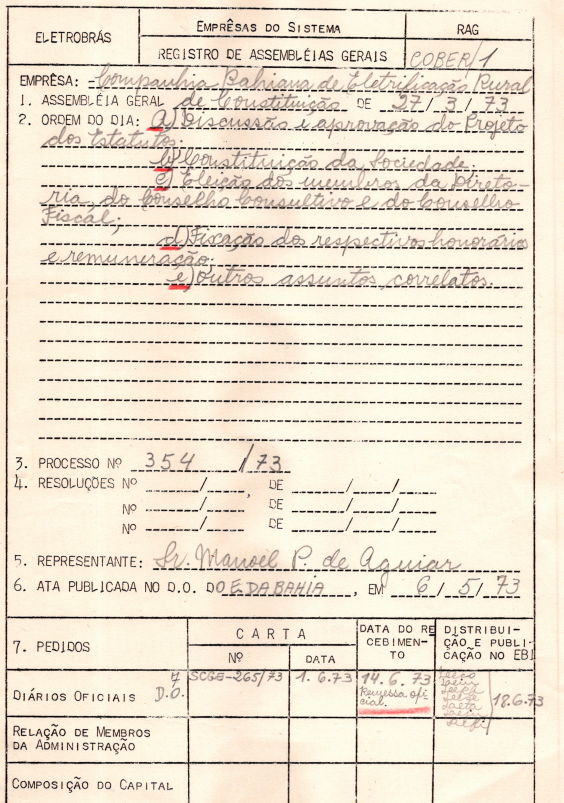 ELETROBRÁS
EMPRÊSAS DO SISTEMA
RAG
REGISTRO DE ASSEMBLÉIAS GERAIS
COBER/1
EMPRÊSA: Companhia Bahiana de Eletrificação Rural
1. ASSEMBLÉIA GERAL de Constituição DE 27/3/73
2. ORDEM DO DIA: a) Discussão e aprovação do Projeto
dos Estatutos;
b) Constituição da Sociedade;
c) Eleição dos membros da Direto-
ria, do Conselho Consultivo e do Conselho
Fiscal;
d) Fixação dos respectivos honorários
e remuneração;
e) outros assuntos correlatos.
3. PROCESSO Nº 354 /73
4. RESOLUÇÕES Nº / , DE / /
Nº / DE / /
Nº / DE / /
5. REPRESENTANTE: Sr. Manoel P. de Aguiar
6. ATA PUBLICADA NO D.O. DO E. DA BAHIA, EM 6/5/73
7. PEDIDOS
CARTA
Nº
DATA
DATA DO RE
CEBIMEN-
TO
DISTRIBUI-
ÇÃO E PUBLI-
CAÇÃO NO EBI
DIÁRIOS OFICIAIS 7 D.O.
SCGE-265/73
1.6.73
14.6.73
Remessa ofi
cial.
18.6.73
RELAÇÃO DE MEMBROS
DA ADMINISTRAÇÃO
COMPOSIÇÃO DO CAPITAL